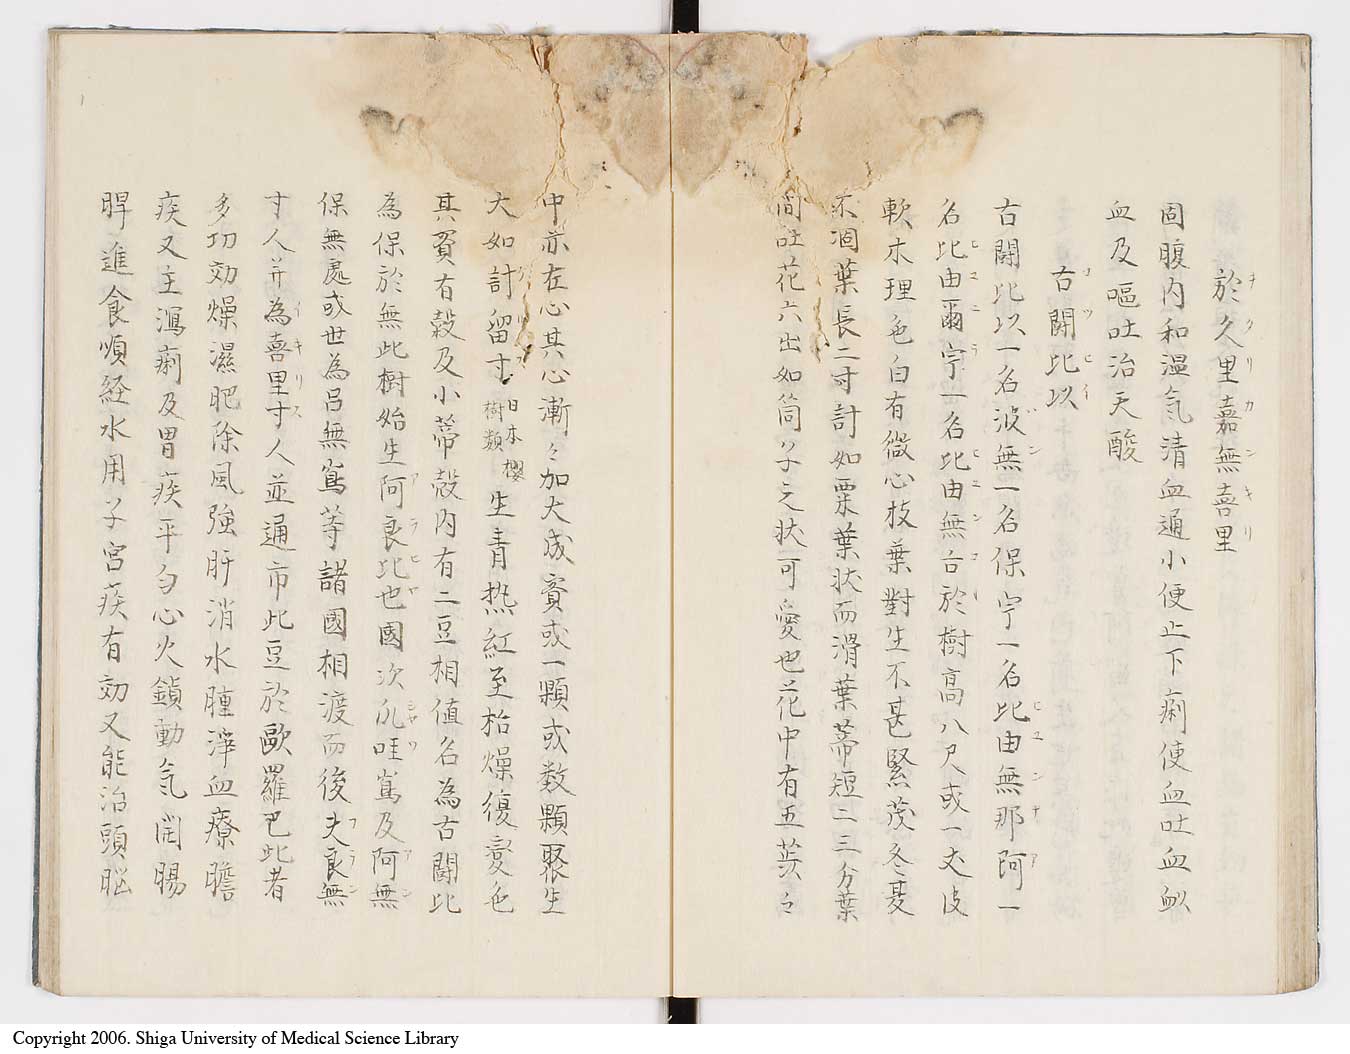 於久里嘉無喜里
ヲクリカンキリ
固腹内和温気清血通小便止下痢使血吐血衂
血及嘔吐治天酸
古闘比以
コツヒイ
古闘比以一名波無一名保宁一名比由無那阿一
名比由爾宁一名比由無古於樹高八尺或一丈皮
軟木理色白有微心枝葉對生不甚緊茂冬夏
不凋葉長二寸計如栗葉状而滑葉蒂短二三分葉
間吐花六出如筒丫子之状可愛也花中有五蕋々
中亦在心其心漸々加大成実或一顆或数顆聚生
大如計留寸日本櫻樹類生青热紅至枯燥復変色
其実有穀及小蒂殻内有二豆相値名為古闘比
為保於無此樹始生阿良比也國次爪哇嶌及阿無
保無處或世為呂無嶌等諸國相渡而後夫良無
寸人并為喜里寸人並通市此豆於歐羅巴此者
多功効燥濕肥除風強肝消水腫淨血療膽
疾又主瀉痢及胃疾平勻心火鎮動気開腸
脾進食順経水用子宮疾有効又能治頭脳
Copyright 2006. Shiga University of Medical Science Library